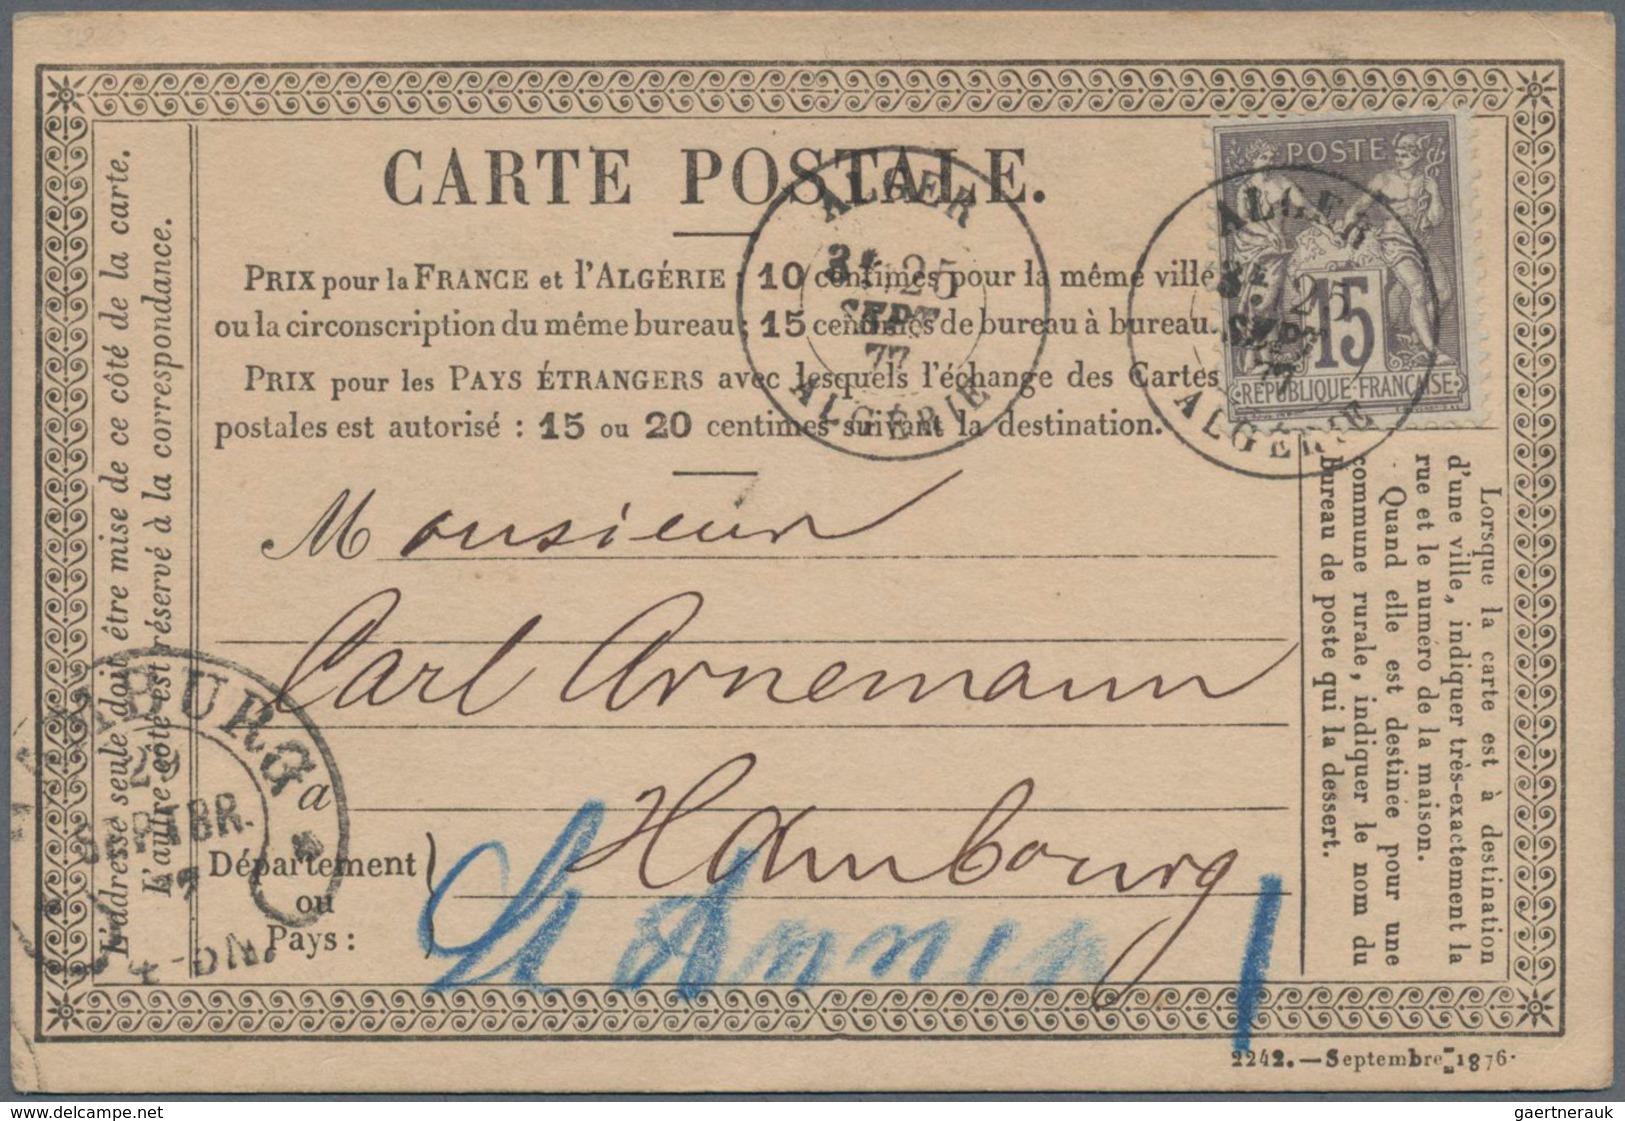 CARTE POSTALE.
PRIX pour la FRANCE et l'ALGÉRIE : 10 centimes pour la même ville
ou la circonscription du même bureau; 15 centimes de bureau à bureau.
PRIX pour les PAYS ÉTRANGERS avec lesquels l'échange des Cartes
postales est autorisé : 15 ou 20 centimes suivant la destination.
L'adresse seule doit être mise de ce côté de la carte.
L'autre côté est réservé à la correspondance.
POSTE
15
RÉPUBLIQUE FRANÇAISE
ALGER
3E 25
SEPT
77
ALGÉRIE
ALGER
3E 25
SEPT
77
ALGÉRIE
Monsieur
Carl Arnemann
a
Hambourg
Département
ou
Pays :
St Annen
1
HAMBURG
BR.
4-5N.
Lorsque la carte est à destination
d'une ville, indiquer très-exactement la
rue et le numéro de la maison.
Quand elle est destinée pour une
commune rurale, indiquer le nom du
bureau de poste qui la dessert.
2242.—Septembre 1876.
www.delcampe.net
gaertnerauk